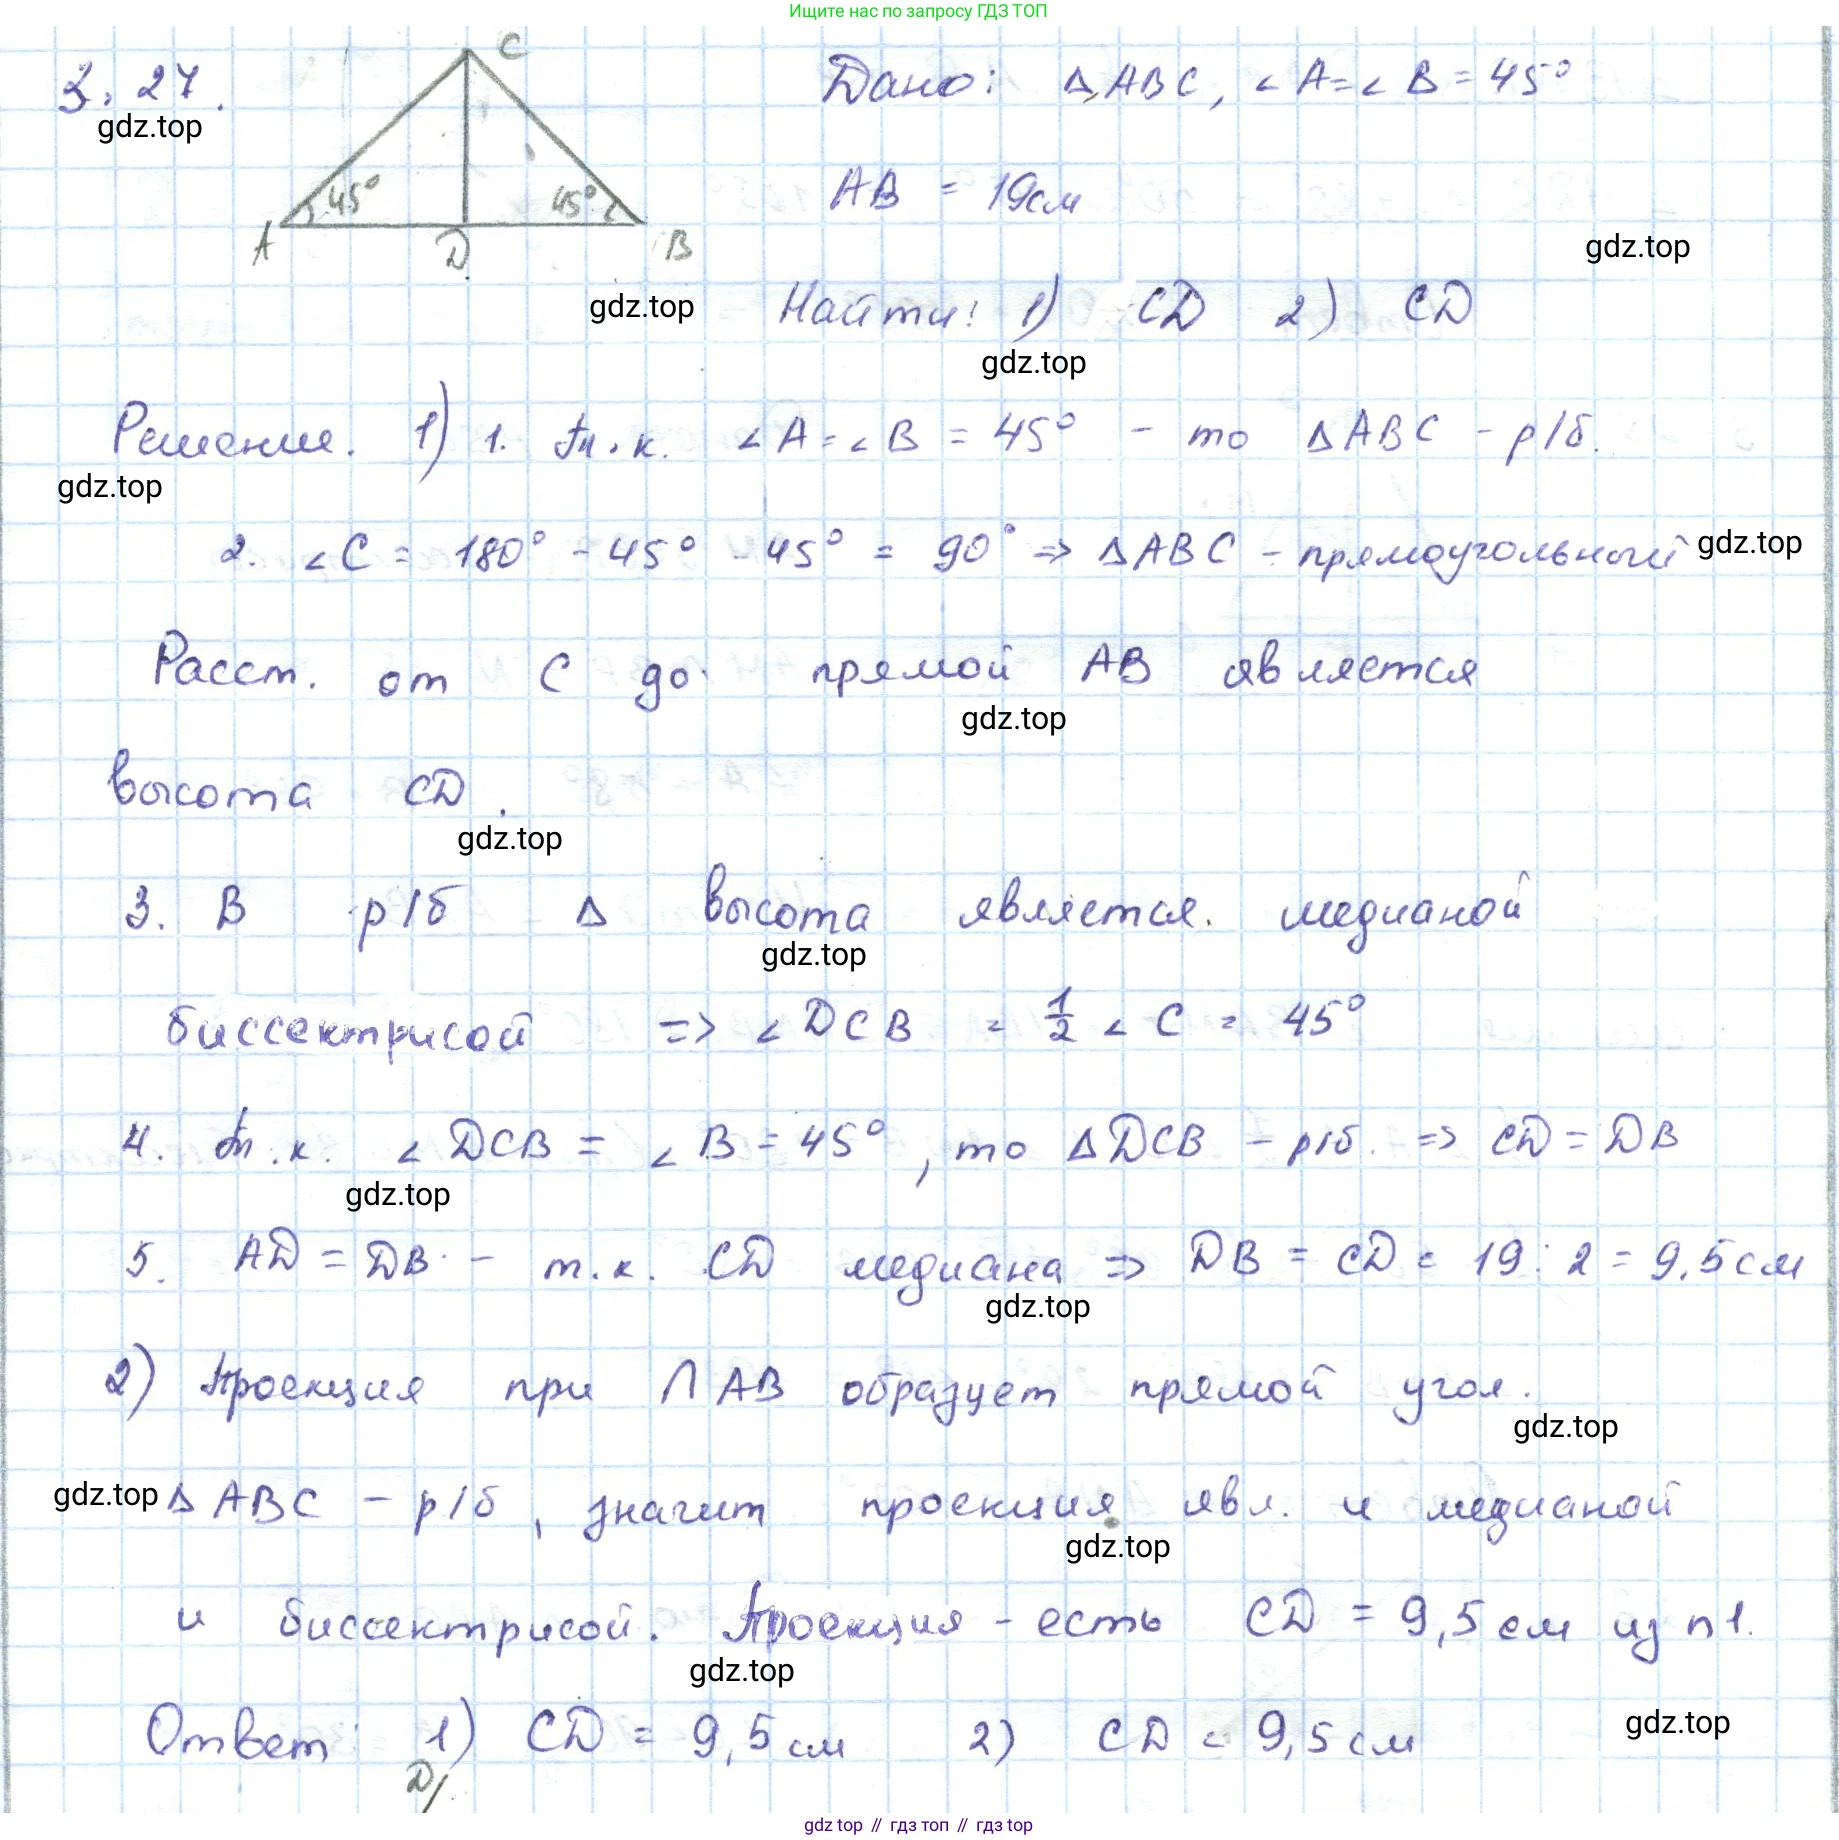 Ищите нас по запросу ГДЗ ТОП
3.27.
gdz.top
C
45°
45°
A
D
B
Дано: ΔABC, ∠A=∠B=45°
AB = 19см
gdz.top
gdz.top
Найти: 1) CD 2) CD
gdz.top
Решение. 1) 1. т.к. ∠A=∠B = 45° - то ΔABC - р/б.
gdz.top
2. ∠C = 180° - 45° - 45° = 90° => ΔABC - прямоугольный
gdz.top
Расст. от C до прямой AB является
gdz.top
высота CD.
gdz.top
3. В р/б Δ высота является. медианой
gdz.top
биссектрисой => ∠DCB = 1/2 ∠C = 45°
4. т.к. ∠DCB = ∠B = 45°, то ΔDCB - р/б. => CD = DB
gdz.top
5. AD = DB - т.к. CD медиана => DB = CD = 19:2 = 9,5см
gdz.top
2) Проекция при ∩ AB образует прямой угол.
gdz.top
gdz.top
ΔABC - р/б, значит проекция явл. и медианой
gdz.top
и биссектрисой. Проекция - есть CD = 9,5 см из п1.
gdz.top
Ответ: 1) CD = 9,5 см 2) CD = 9,5 см
gdz.top
D
gdz.top // гдз топ // gdz.top